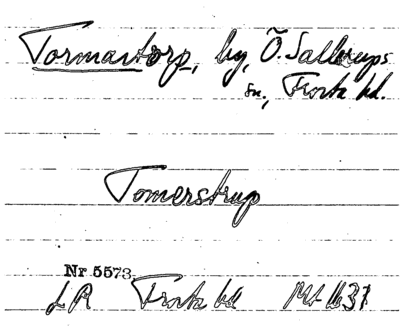 Tormastorp, by, Ö. Sallerups
sn., Frosta hd.
Tomerstrup
Nr 5573.
J R Frosta hd Mt 1637